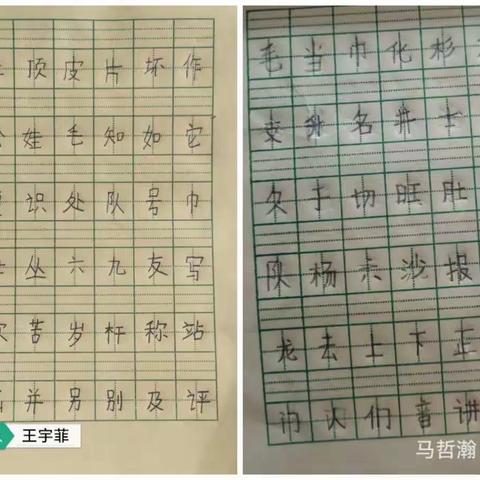 顶皮片坏作
娃毛知如它
识处队号巾
丛六九友写
苦岁杆称站
并另别及评
王宇菲
毛当巾化杉
变升名井士
欠于切旺肚
队杨朱沙报
龙去上下正
门认们音讲
马哲瀚